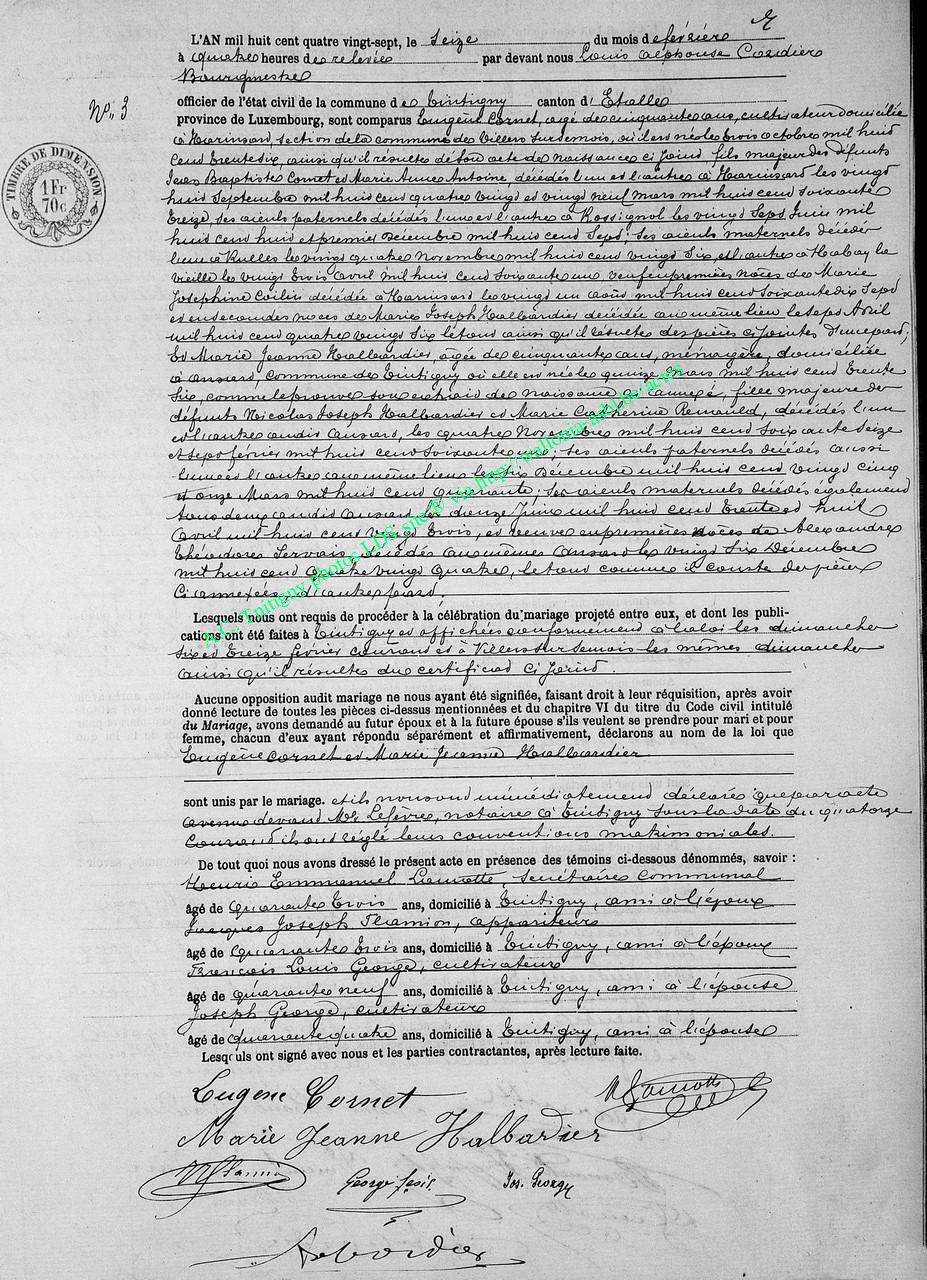 L'AN mil huit cent quatre vingt-sept, le seize du mois de février
à quatre heures de relevée par devant nous Louis Alphonse Cordier
Bourgmestre
N° 3
officier de l'état civil de la commune de Tintigny canton d'Etalle
province de Luxembourg, sont comparus Eugène Cornet, âgé de cinquante ans, cultivateur domicilié
à Harinsart, section de la commune de Villers sur Semois, où il est né le trois octobre mil huit
cent trente six, ainsi qu'il résulte de son acte de naissance ci joint fils majeur des défunts
TIMBRE DE DIMENSION
1 Fr
70c
Jean Baptiste Cornet et Marie Anne Antoine, décédés l'un et l'autre à Harinsart les vingt
huit Septembre mil huit cent quatre vingt et vingt neuf mars mil huit cent soixante
treize, ses aïeuls paternels décédés l'un et l'autre à Rossignol les vingt Sept Juin mil
huit cent huit et premier Décembre mil huit cent Sept; ses aïeuls maternels décédés
l'un à Rulles le vingt quatre Novembre mil huit cent vingt Six, et l'autre à Habay la
vieille le vingt trois avril mil huit cent soixante un veuf en premières noces de Marie
Joséphine Collin décédée à Harinsart le vingt un août mil huit cent soixante dix Sept
et en secondes noces de Marie Joseph Halbardier décédée au même lieu le sept Avril
mil huit cent quatre vingt Six le tout ainsi qu'il résulte des pièces ci jointes d'une part;
Et Marie Jeanne Halbardier, âgée de cinquante ans, ménagère, domiciliée
à Ansart, commune de Tintigny où elle est née le quinze mars mil huit cent trente
Six, comme le prouve son extrait de naissance ci annexé, fille majeure des
défunts Nicolas Joseph Halbardier et Marie Catherine Renauld, décédés l'un
et l'autre audit Ansart, les quatre Novembre mil huit cent soixante seize
et sept février mil huit cent soixante ses aïeuls paternels décédés aussi
l'un et l'autre au même lieu les six Décembre mil huit cent vingt cinq
et onze Mars mil huit cent quarante; ses aïeuls maternels décédés également
tous deux audit Ansart les douze Juin mil huit cent trente et huit
Avril mil huit cent vingt trois, et veuve en premières noces de Alexandre
Théodore Servais, décédé au même Ansart le vingt Six Décembre
mil huit cent quatre vingt quatre, le tout comme il conste des pièces
ci annexées, d'autre part.
A.C. Tintigny photos LDS site® via http://wallonia-asbl.be/actes
Lesquels nous ont requis de procéder à la célébration du mariage projeté entre eux, et dont les publi-
cations ont été faites à Tintigny et affichées conformément à la loi les dimanches
six et treize février courant et à Villers sur Semois les mêmes dimanches
ainsi qu'il résulte du certificat ci joint.
Aucune opposition audit mariage ne nous ayant été signifiée, faisant droit à leur réquisition, après avoir
donné lecture de toutes les pièces ci-dessus mentionnées et du chapitre VI du titre du Code civil intitulé
du Mariage, avons demandé au futur époux et à la future épouse s'ils veulent se prendre pour mari et pour
femme, chacun d'eux ayant répondu séparément et affirmativement, déclarons au nom de la loi que
Eugène Cornet et Marie Jeanne Halbardier
sont unis par le mariage. et ils nous ont immédiatement déclaré que par acte
avenu devant Mr Lefèvre, notaire à Tintigny sous la date du quatorze
courant ils ont réglé leurs conventions matrimoniales.
De tout quoi nous avons dressé le présent acte en présence des témoins ci-dessous dénommés, savoir :
Henri Emmanuel Lamotte, secrétaire communal
âgé de quarante trois ans, domicilié à Tintigny, ami à l'époux
Jacques Joseph Thamion, appariteur
âgé de quarante trois ans, domicilié à Tintigny, ami à l'époux
François Louis George, cultivateur
âgé de quarante neuf ans, domicilié à Tintigny, ami à l'épouse
Joseph George, cultivateur
âgé de quarante quatre ans, domicilié à Tintigny, ami à l'épouse
Lesquels ont signé avec nous et les parties contractantes, après lecture faite.
Eugène Cornet
Marie Jeanne Halbardier
Jos. George